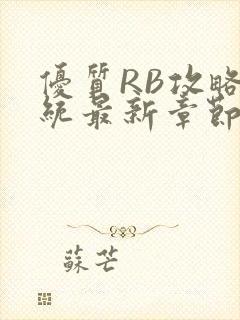 優質RB攻略
統最新章節
蘇芒